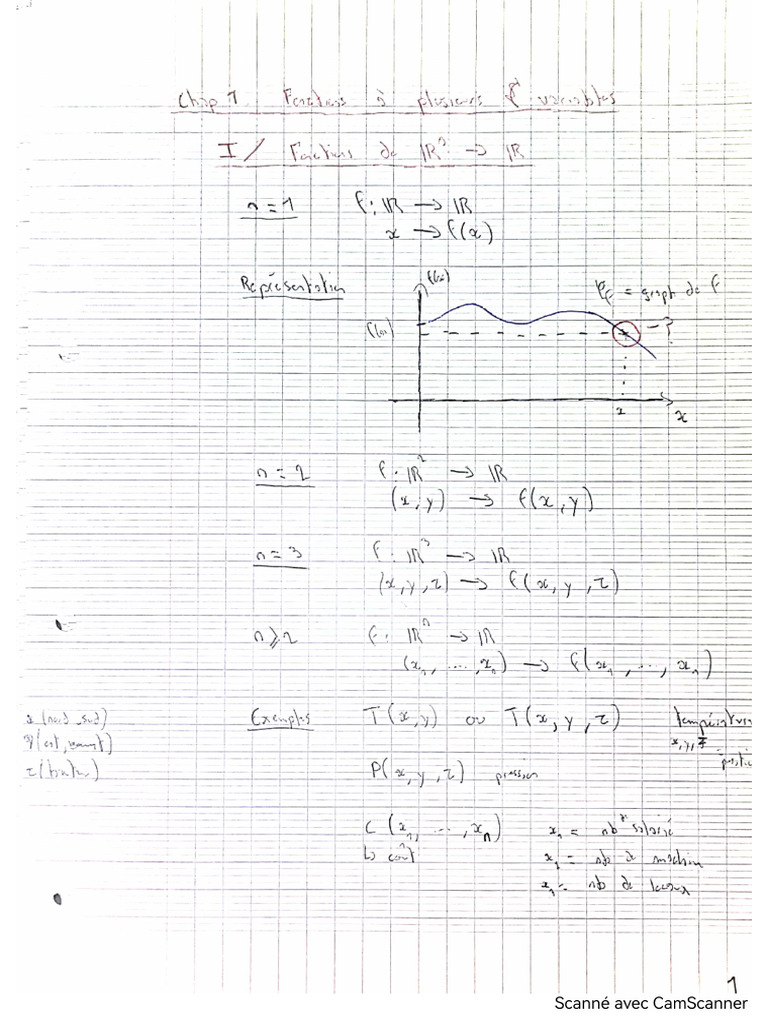 Chap 1 Fonctions à plusieurs variables
I/ Fonctions de ℝⁿ → ℝ
n = 1 f: ℝ → ℝ
x → f(x)
Représentation
f(x)
𝒞f = graph de f
f(x)
- ?
x
x
n = 2 f: ℝ² → ℝ
(x, y) → f(x, y)
n = 3 f: ℝ³ → ℝ
(x, y, z) → f(x, y, z)
n ≥ 2 f: ℝⁿ → ℝ
(x₁, ..., xₙ) → f(x₁, ..., xₙ)
x (nord_sud)
y (est, ouest)
z (
Exemples T(x, y) ou T(x, y, z) température
x, y, z
P(x, y, z) pression
C (x₁, ..., xₙ) x₁ = nb salarié
↳ coût x₂ = nb de machin
= nb de locaux
1
Scanné avec CamScanner